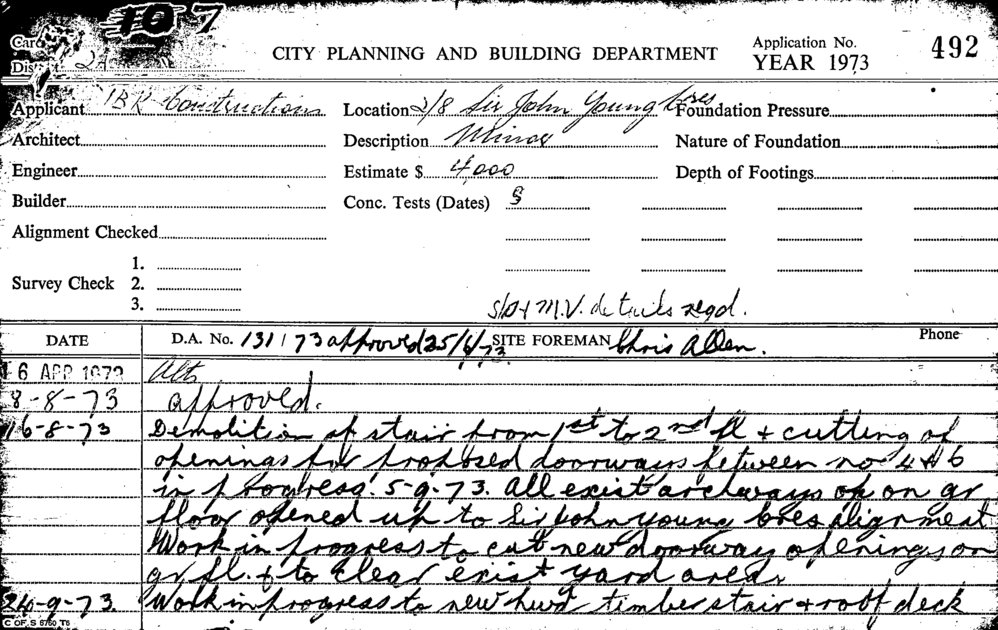 10 7
Card
District 2A
CITY PLANNING AND BUILDING DEPARTMENT
Application No. 492
YEAR 1973
Applicant IBK Constructions Location 2/8 Sir John Young Cres Foundation Pressure
Architect Description Minor Nature of Foundation
Engineer Estimate $ 4,000 Depth of Footings
Builder Conc. Tests (Dates)
Alignment Checked
Survey Check 1.
2.
3.
M.V. details reqd.
DATE D.A. No. 131/73 approved 25/6/73 SITE FOREMAN Chris Allen. Phone
6 APR 1973 Alts
8-8-73 approved.
16-8-73 Demolition of stair from 1st to 2nd fl + cutting of
openings for proposed doorways between no 4 & 6
in progress. 5-9-73. All exist archways on gr
floor opened up to Sir John Young Cres alignment
Work in progress to cut new doorway openings on
gr fl. + to clear exist yard area
24-9-73. Work in progress to new hwd timber stair + roof deck
C OF S 6760 T6